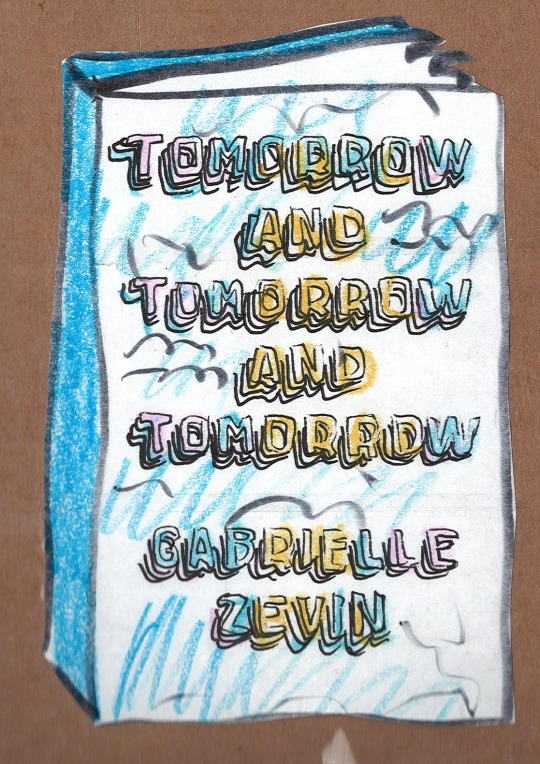 TOMORROW
AND
TOMORROW
AND
TOMORROW
GABRIELLE
ZEVIN